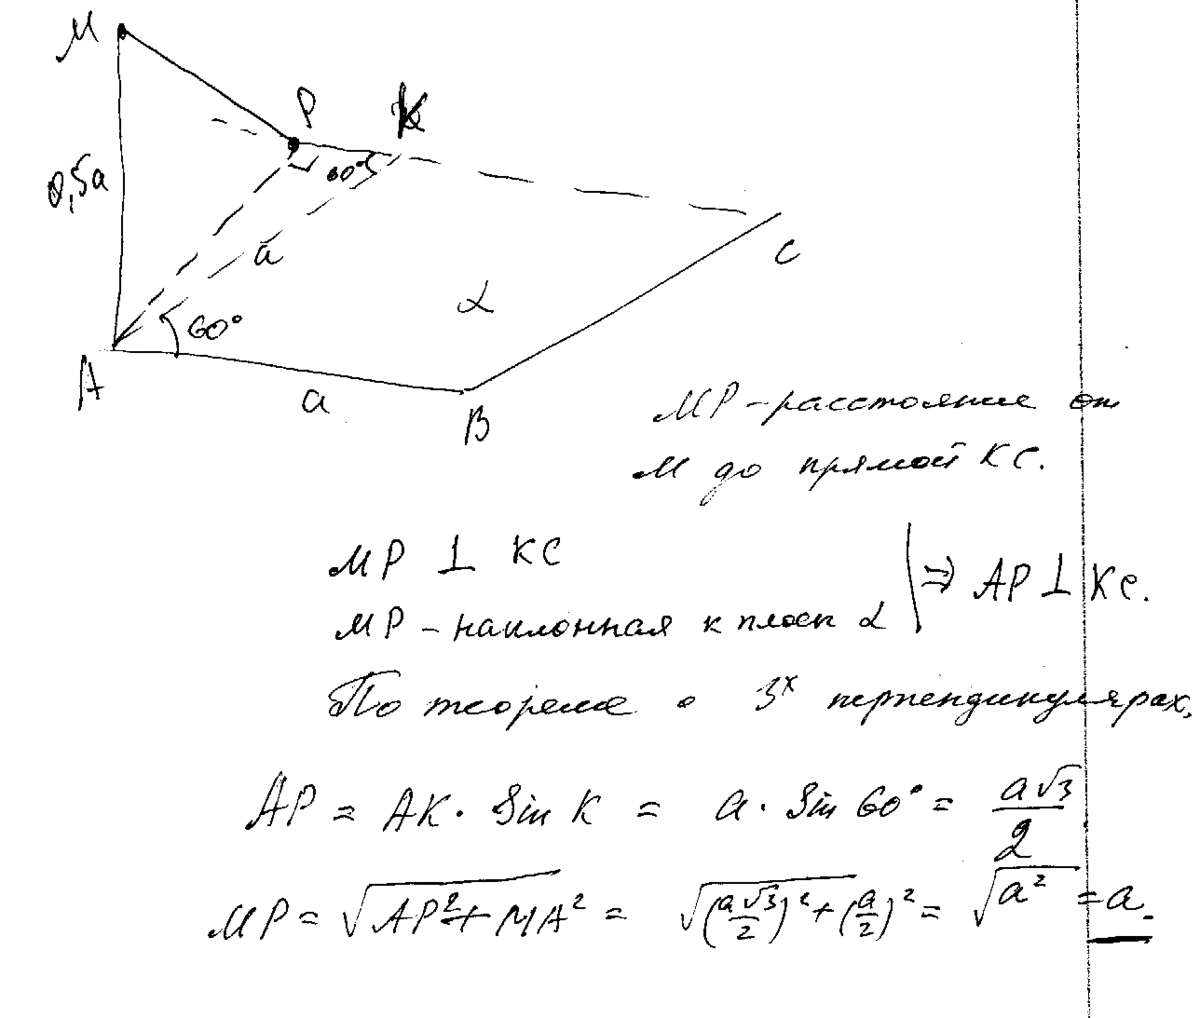 M
P
K
0,5a
60°
a
α
60°
C
A
a
B
MP - расстояние от
M до прямой KC.
MP ⊥ KC
MP - наклонная к плоск α
⇒ AP ⊥ KC.
По теореме о 3х перпендикулярах,
AP = AK · Sin K = a · Sin 60° = a√3/2
MP = √(AP² + MA²) = √((a√3/2)² + (a/2)²) = √(a²) = a.